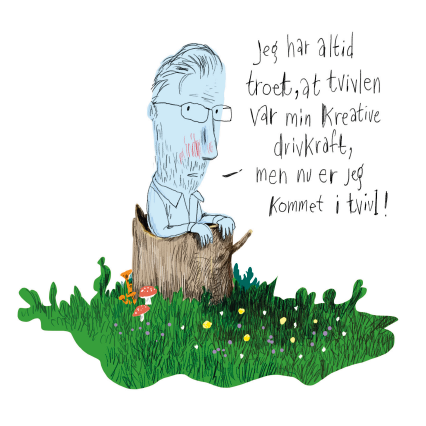 Jeg har altid
troet, at tvivlen
var min kreative
drivkraft,
men nu er jeg
kommet i tvivl!